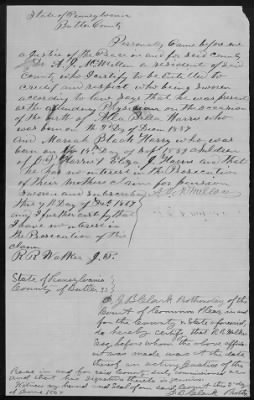 State of Pennsylvania
Butler County
Personally Came before me
a Justice of the Peace in and for said county
Dr A. J. McMillen a resident of said
County who I certify to be Entitled to
credit and respect who being sworn
according to law, says that he was present
as the attending Physician on the occasion
of the birth of Bella Harris who
was born on the day of 1857
And Harris who was
born on the day of Sept 1859 children
of Harris & Eliza J Harris and that
he has no interest in the Prosecution
of their Mothers claim for pension
Sworn and subscribed
this day of 1867
and I further certify that
I have no interest in
the Prosecution of the
claim
R. R. Walker J. P.
State of Pennsylvania
County of Butler SS
I J. B. Clark Prothonotary of the
Court of Common Pleas in and
for the County & State aforesaid,
do hereby certify that R. R. Walker
Esq, before whom the above affidavit
was made was at the date
thereof an acting Justice of the
Peace in and for said County duly commissioned
and that his signature thereto is genuine
Witness my hand and seal of said Court the day
of June 1867
J. B. Clark Prothy